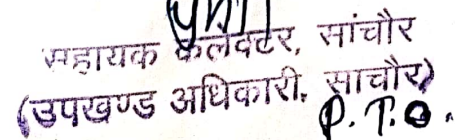 सहायक कलेक्टर, सांचौर
(उपखण्ड अधिकारी, साचौर)
P. T. O.